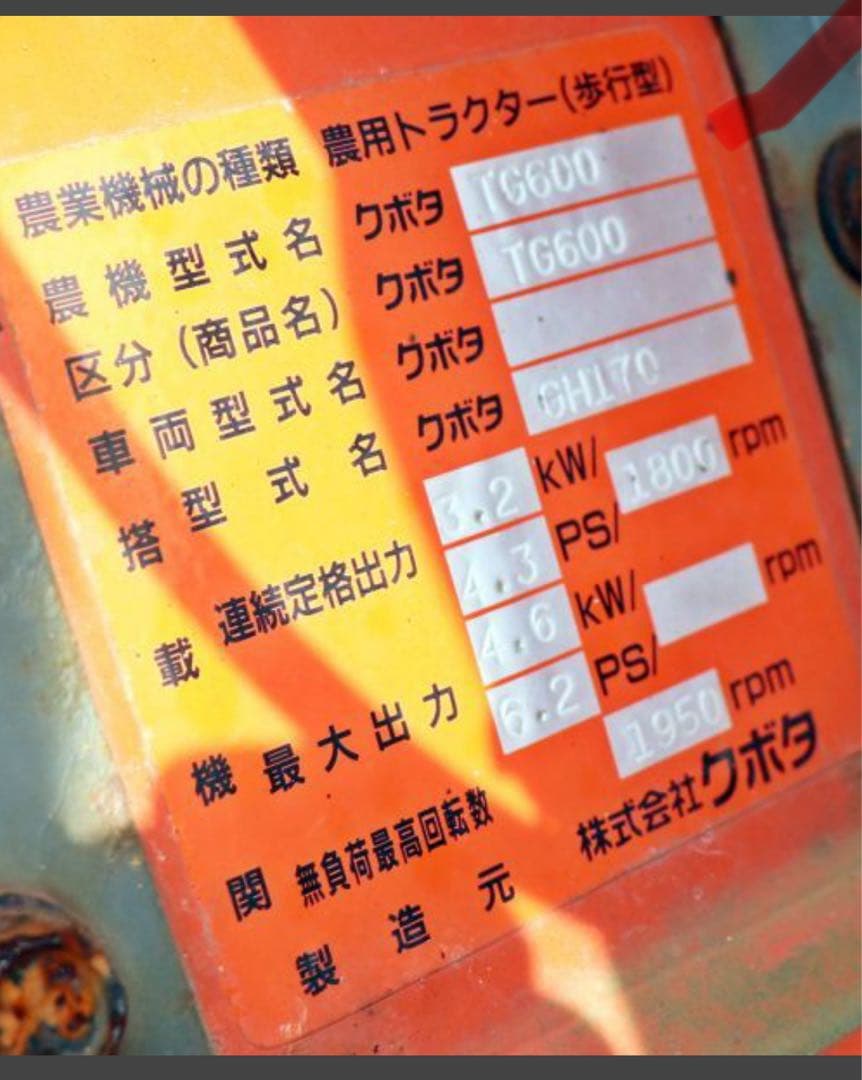 農業機械の種類 農用トラクター(歩行型)
農機型式名 クボタ TG600
区分(商品名) クボタ TG600
車両型式名 クボタ
搭載機関 型式名 クボタ GH170
連続定格出力 3.2 kW/ 4.3 PS/ 1800 rpm
最大出力 4.6 kW/ 6.2 PS/ rpm
無負荷最高回転数 1950 rpm
製造元 株式会社クボタ